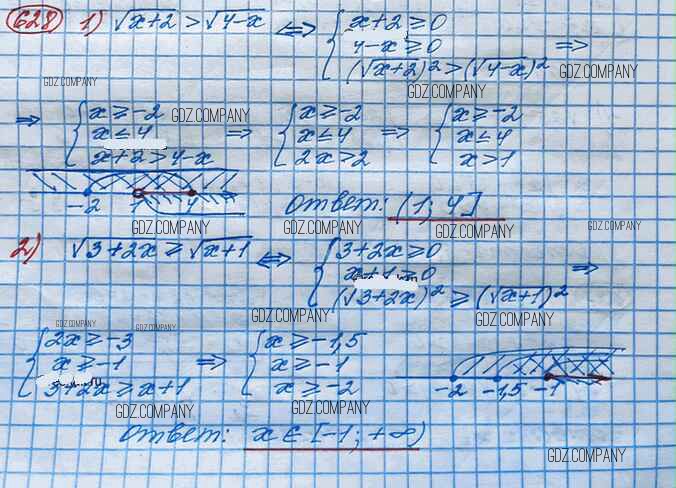 628 1) √x+2 > √4-x ⟺ { x+2 ≥ 0
4-x ≥ 0 ⟹
(√x+2)² > (√4-x)²
GDZ.COMPANY GDZ.COMPANY
GDZ.COMPANY
⟹ { x ≥ -2 GDZ.COMPANY { x ≥ -2 { x ≥ -2
x ≤ 4 ⟹ x ≤ 4 ⟹ x ≤ 4
x+2 > 4-x 2x > 2 x > 1
-2 1 4 Ответ: (1; 4]
GDZ.COMPANY GDZ.COMPANY GDZ.COMPANY GDZ.COMPANY
2) √3+2x ≥ √x+1 ⟺ { 3+2x ≥ 0
x+1 ≥ 0 ⟹
(√3+2x)² ≥ (√x+1)²
GDZ.COMPANY GDZ.COMPANY
GDZ.COMPANY GDZ.COMPANY
{ 2x ≥ -3 { x ≥ -1,5
x ≥ -1 ⟹ x ≥ -1
3+2x ≥ x+1 x ≥ -2 -2 -1,5 -1
GDZ.COMPANY GDZ.COMPANY
Ответ: x ∈ [-1; +∞)
GDZ.COMPANY